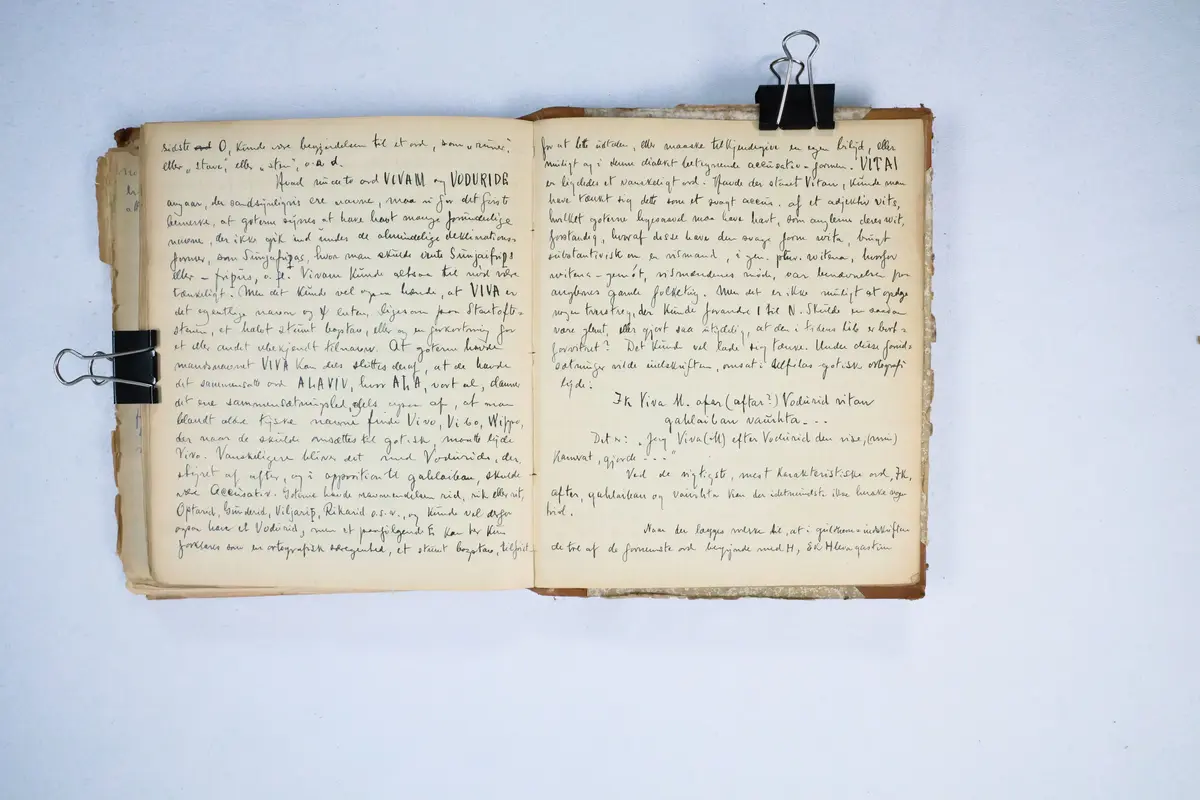 sidste O, kunde være begyndelsen til et ord, som „runer",
eller „stave", eller „sten", o. a. d.
Hvad nu de to ord VIVAM og VODURIDE
angaar, der sandsynligvis ere navne, maa vi for det første
bemærke, at goterne synes at have havt mange forunderlige
navne, der ikke gik ind under de almindelige deklinations
former, som Sunjaifriþas, hvor man skulde vente Sunjaifriþs
eller – friþus, o. fl. Vivam kunde altsaa til nød være
tænkeligt. Men det kunde vel ogsaa hænde, at VIVA er
det egentlige navn og M enten, ligesom paa Startofte-
stenen, et halvt stumt bogstav, eller og en forkortning for
et eller andet ubekjendt tilnavn. At goterne havde
mandsnavnet VIVA kan dels sluttes deraf, at de havde
det sammensatte ord ALAVIV, hvor ALA, vort al, danner
det ene sammensætningsled, dels ogsaa af, at man
blandt oldtyske navne finder Vivo, Vibo, Wippo,
der naar de skulde omsættes til gotisk, maatte lyde
Viva. Vanskeligere bliver det med Voduride, der
styret af after, og i apposition til gahlaiban, skulde
være Accusativ. Goterne havde navneendelsen rid, rik eller rit,
Optarid, Gunderid, Viljariþ, Rikarid o.s.v., og kunde vel derfor
ogsaa have et Vodurid, men et paafølgende E kan her kun
forklares som en ortografisk særegenhed, et stumt bogstav, tilføiet
for at lette udtalen, eller maaske tilkjendegive en egen bilyd, eller
muligt og i denne dialekt betegnende accusativ-formen. VITAI
er ligeledes et vanskeligt ord. Havde der staaet Vitan, kunde man
have tænkt sig dette som et svagt accus. af et adjektiv vits,
hvilket goterne ligesaavel maa have havt, som anglerne deres wit,
forstandig, hvoraf disse have den svage form wita, brugt
substantivisk om en vismand, i gen. plur. witena, hvorfor
witena-gemót, vismændenes møde, var benævnelsen paa
anglernes gamle folketing. Men det er ikke muligt at opdage
nogen tverstreg, der kunde forandre I til N. Skulde en saadan
være glemt, eller gjort saa utydelig, at den i tidens løb er bort-
forvitret? Det kunde vel lade sig tænke. Under disse forud-
sætninger vilde indskriften, omsat i Ulfilas gotisk ortografi
lyde:
Ik Viva M. afar (aftar?) Vodurid vitan
gahlaiban vaúrhta - - -
Det er: „Jeg Viva (M) efter Vodurid den vise, (min)
kamerat, gjorde - - - "
Ved de vigtigste, mest karakteristiske ord, Ik,
after, gahlaiban og vaúrhta kan der idetmindste ikke herske nogen
tvivl.
Naar der lægges mærke til, at i guldhorn-indskriften
de tre af de fornemste ord begynde med H, Ek Hlevagastim